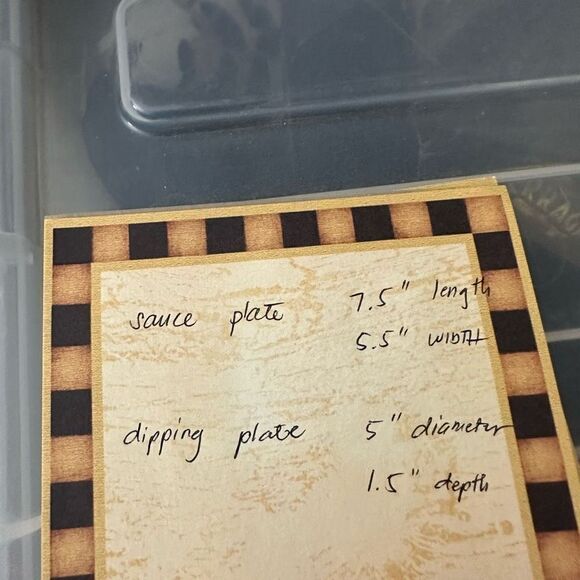 sauce plate 7.5" length
5.5" WIDTH
dipping plate 5" diameter
1.5" depth